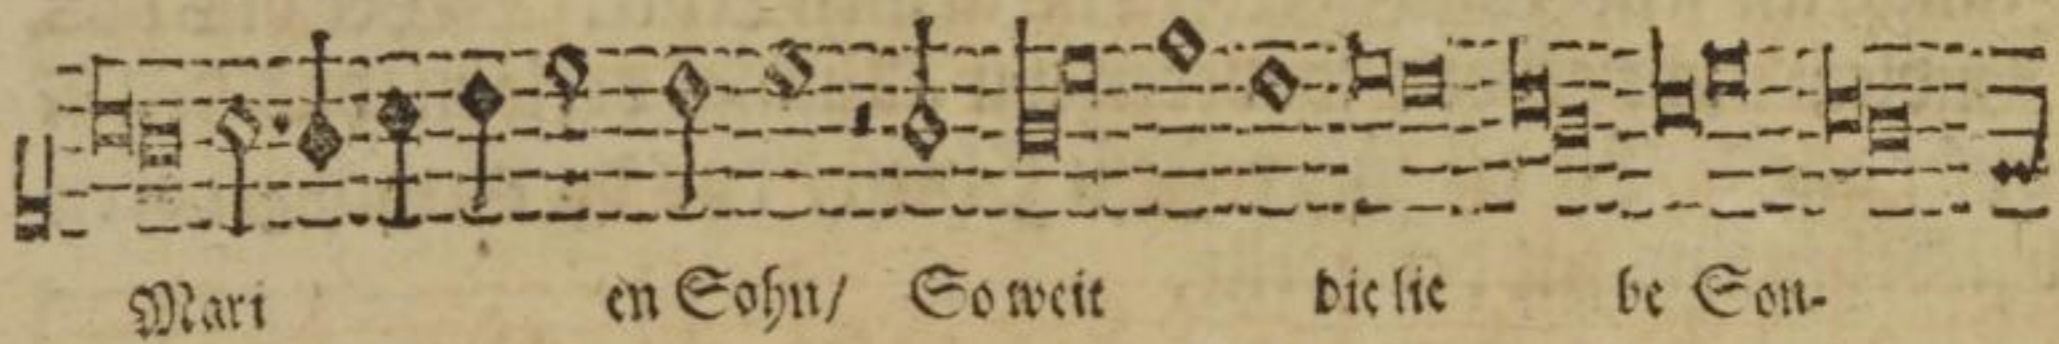 Mari en Sohn/ So weit die lie be Son-